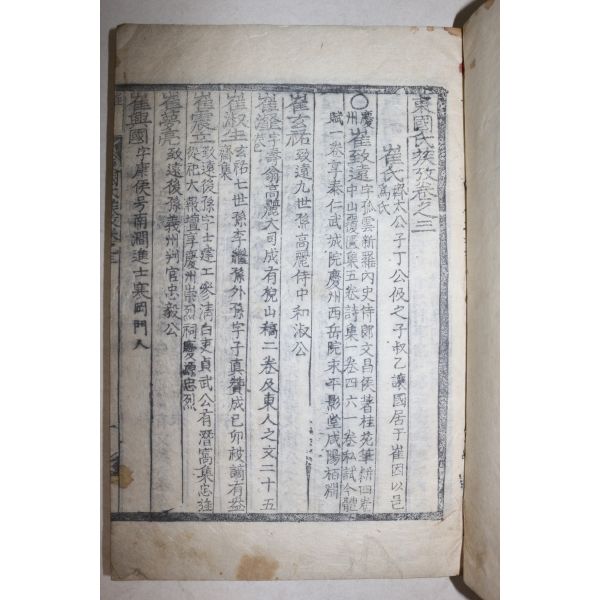 東國氏族攷卷之三
崔氏 齊太公子丁公伋之子叔乙讓國居于崔因以邑
爲氏
〇慶州 崔致遠 字孤雲新羅內史侍郞文昌侯著桂苑筆耕四卷
中山覆簣集五卷詩集一卷四六一卷私試今體
賦一卷享泰仁武城院慶州西岳院永平影堂咸陽栢淵
崔玄祐 致遠九世孫高麗侍中和淑公
崔瀣 字壽翁高麗大司成有猊山稿二卷及東人之文二十五
卷
崔淑生 玄祐七世孫李繼孫外孫字子眞贊成己卯被謫有益
齋集
崔震立 致遠後孫字士建工參淸白吏貞武公有潛窩集忠壯
從祀大報壇享慶州崇烈祠慶源忠烈
崔 亮 致遠後孫義州判官忠毅公
崔興國 字康侯号南澗進士寒岡門人